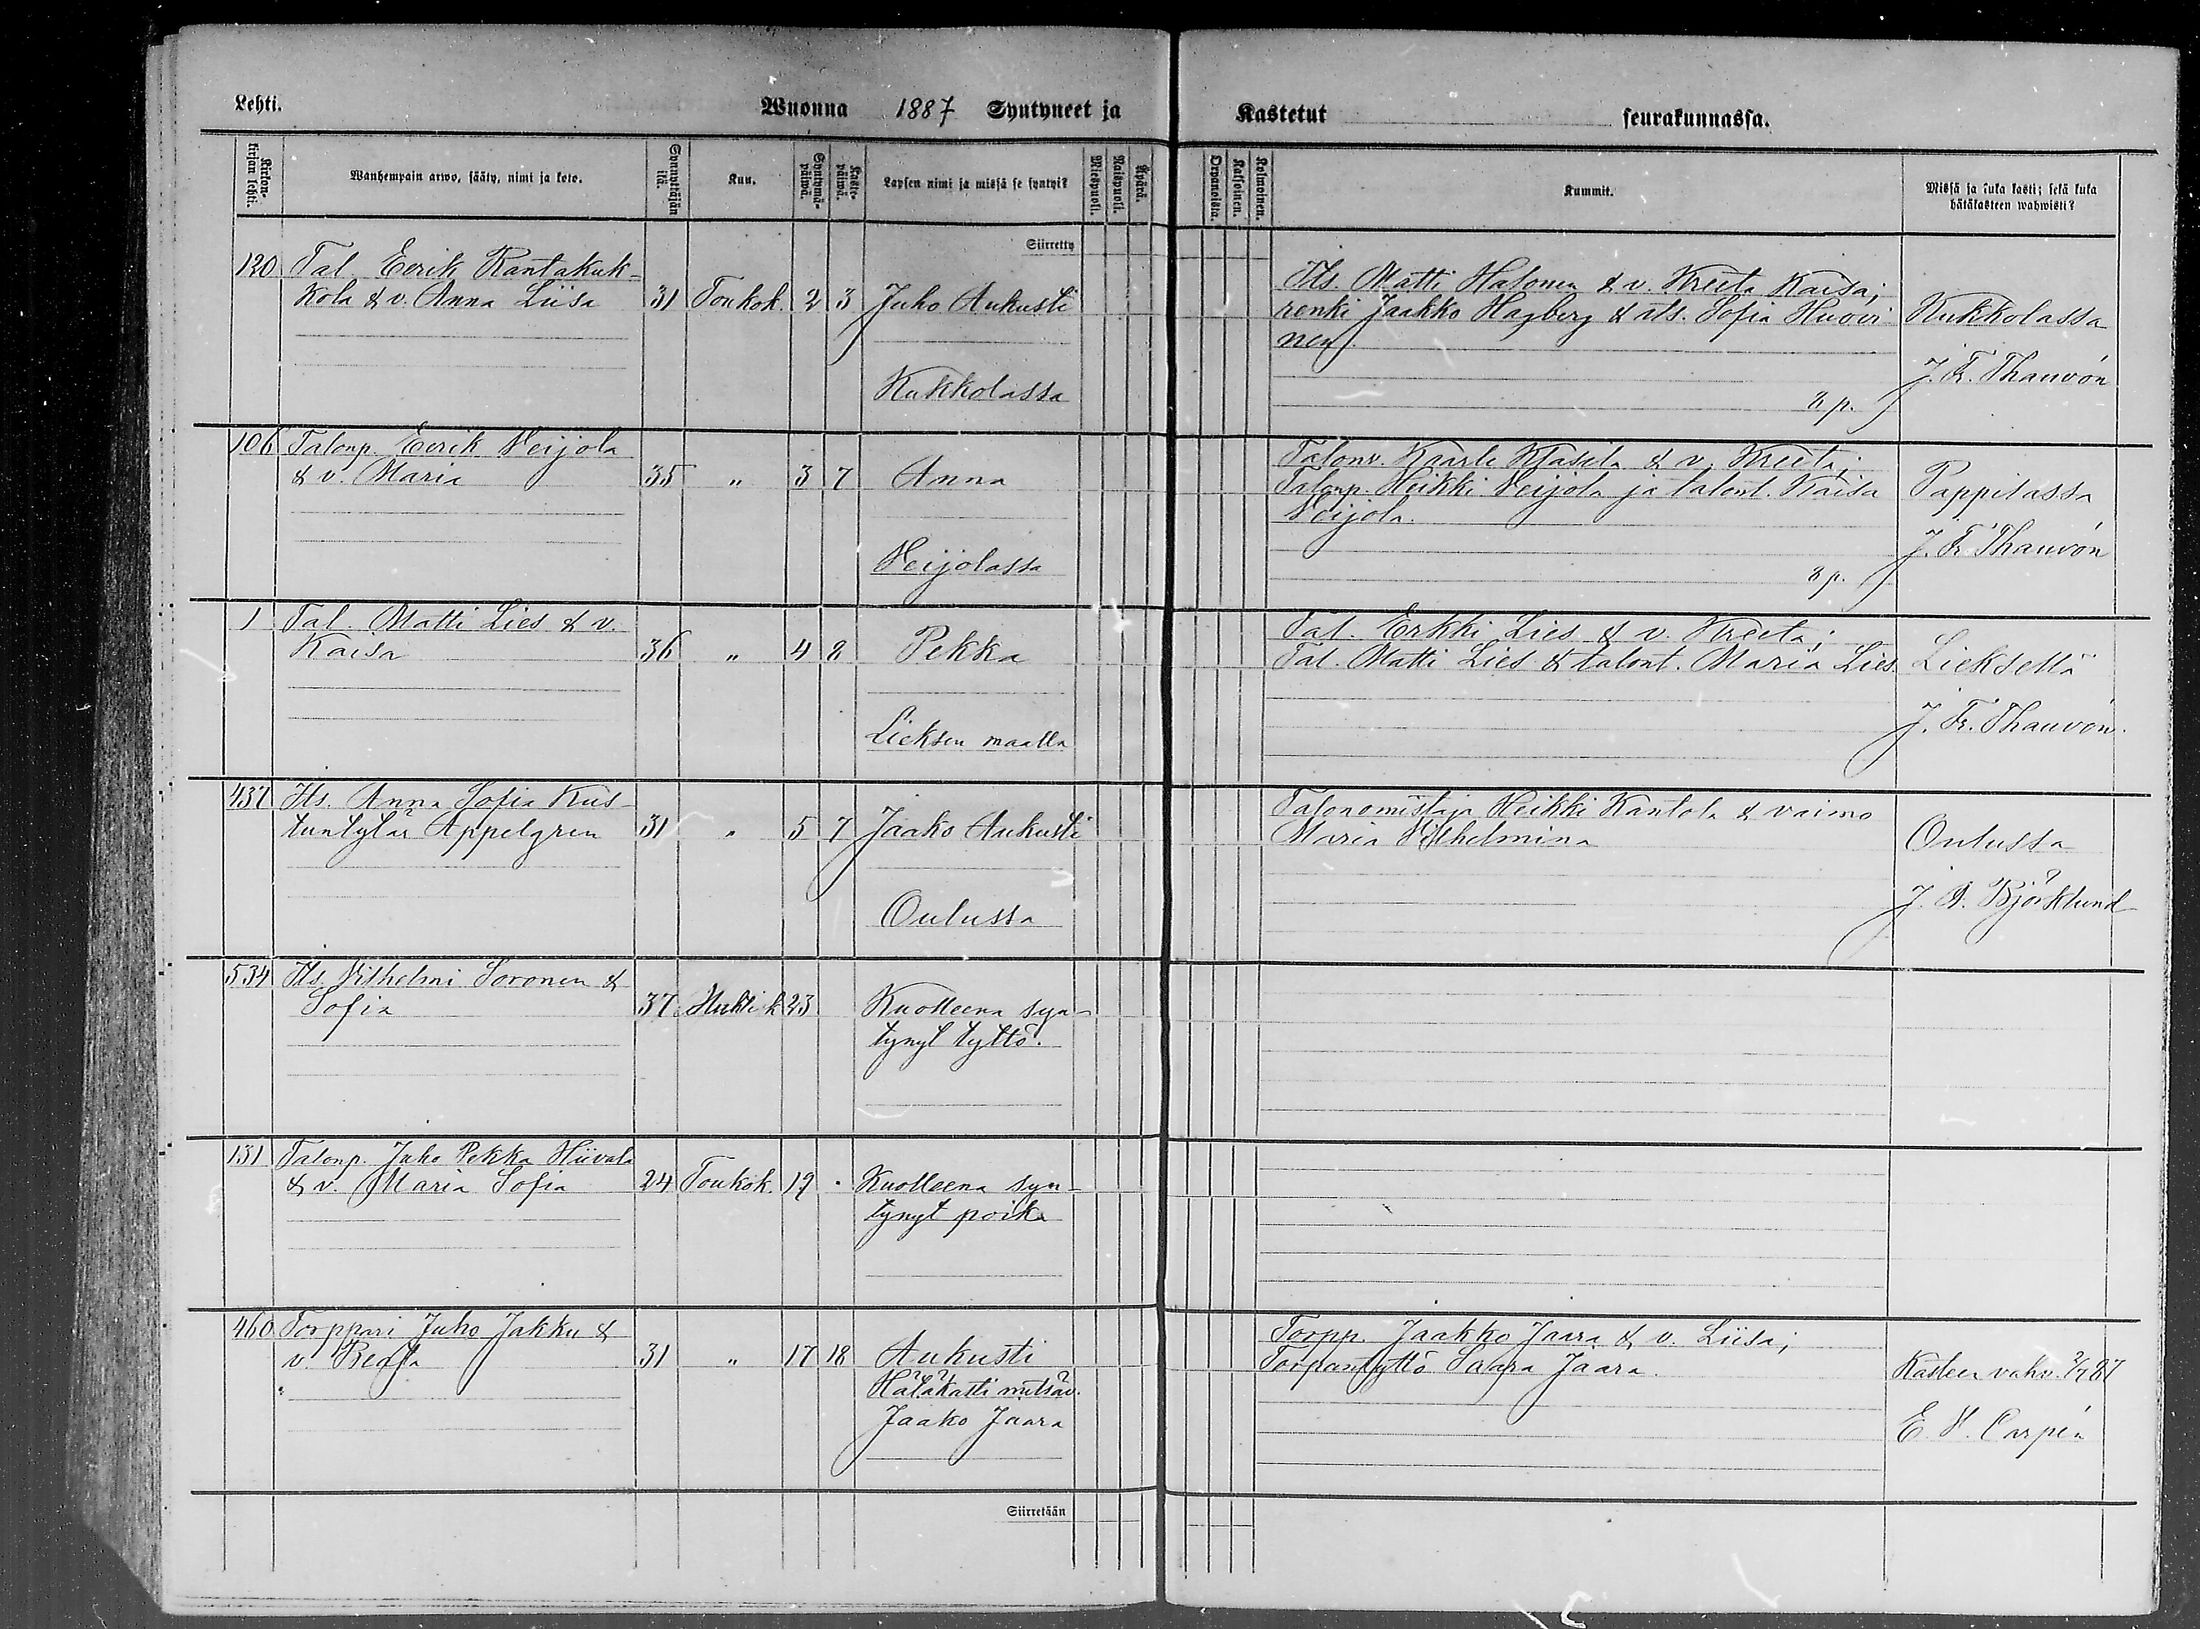 Lehti.
Wuonna 1887 Syntyneet ja
Kastetut seurakunnassa.
Kirkonkirjan lehti.
Wanhempain arwo, sääty, nimi ja koto.
Synnyttäjän ikä.
Kuu.
Syntymäpäiwä.
Kastepäiwä.
Lapsen nimi ja missä se syntyi?
Miespuoli.
Naispuoli.
Äpärä.
Orpanoista.
Kaksoinen.
Kolmoinen.
Kummit.
Missä ja kuka kasti; sekä kuka
hätäkasteen wahwisti?
Siirretty
120 Tal. Eerik Rantakuk-
kola & v. Anna Liisa 31 Toukok. 2 3 Juho Aukusti
Kukkolassa
Its. Matti Halonen & v. Kreeta Kaisa;
renki Jaakko Hagberg & its. Sofia Huovi
nen
r. p.
Kukkolassa
J. Fr. Thauvón
106 Talonp. Eerik Veijola
& v. Maria 35 „ 3 7 Anna
Veijolassa
Talonp. Kaarle Klasila & v. Kreeta;
Talonp. Heikki Veijola ja talont. Kaisa
Veijola.
r. p.
Pappilassa
J. Fr. Thauvón
1 Tal. Matti Lies & v.
Kaisa 36 „ 4 8 Pekka
Lieksen maalla
Tal. Erkki Lies & v. Kreeta;
Tal. Matti Lies & talont. Maria Lies.
Lieksellä
J. Fr. Thauvón.
437 Its. Anna Sofia Kus-
tuntytär Appelgren 31 „ 5 7 Jaako Aukusti
Oulussa
Talonomistaja Heikki Kantola & vaimo
Maria Vilhelmina
Oulussa
J. A. Björklund
534 Its. Vilhelmi Soronen &
Sofia 37 Huhti k. 23 Kuolleena syn-
tynyt tyttö.
131 Talonp. Juho Pekka Hiivala
& v. Maria Sofia 24 Toukok. 19 Kuolleena syn-
tynyt poika
460 Torppari Juho Jakku &
v Beata 31 „ 17 18 Aukusti
Hätäkasti mitsäv.
Jaako Jaara
Torpp. Jaakko Jaara & v. Liisa;
Torpantyttö Saara Jaara.
Kasteen vahv. 2/7 87
E. V. Carpén
Siirretään